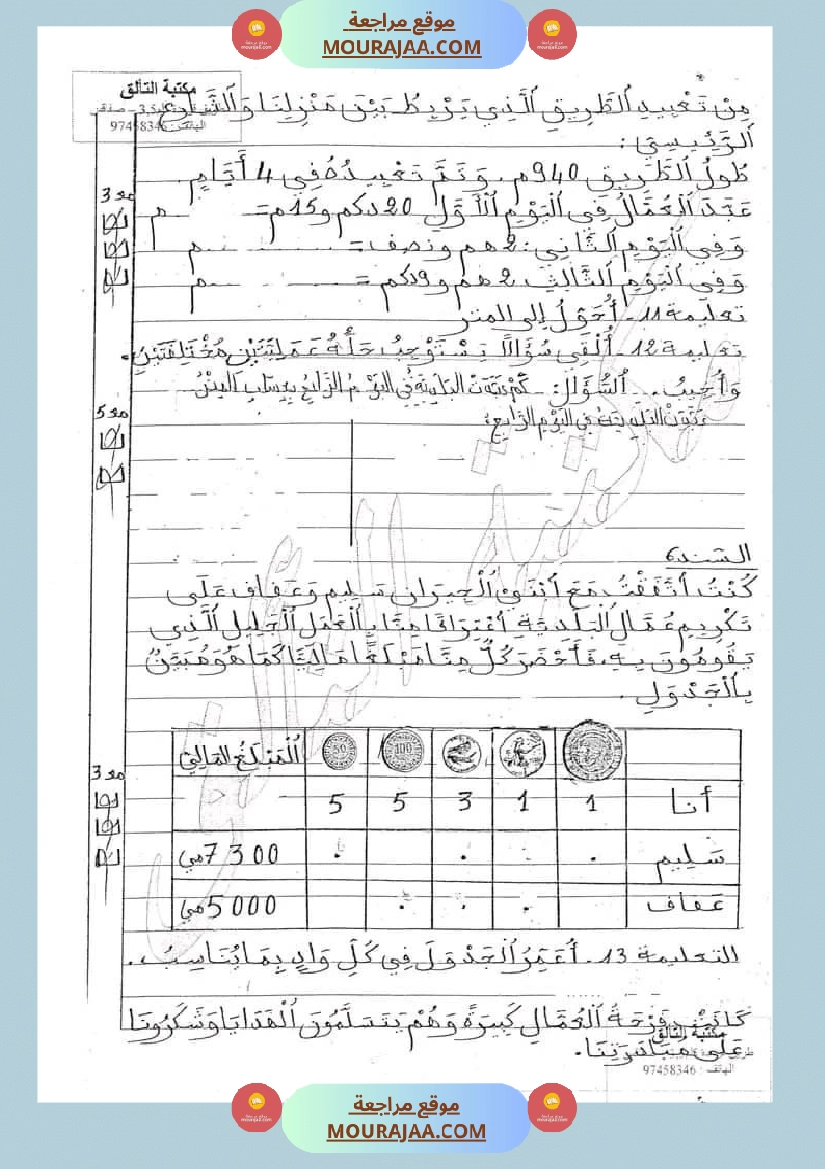 موقع مراجعة
MOURAJAA.COM
مكتبة التألق
97458346
مِنْ تَعْبِيدِ الطَّرِيقِ الَّذِي يَرْبِطُ بَيْنَ مَنْزِلِنَا وَالشَّارِعِ
الرَّئِيسِيِّ :
طُولُ الطَّرِيقِ 940م. وَتَمَّ تَعْبِيدُهُ فِي 4 أَيَّامٍ.
عَبَّدَ الْعُمَّالُ فِي الْيَوْمِ الْأَوَّلِ 20دكم و15م = ........ م
وَفِي الْيَوْمِ الثَّانِي : 2هم ونصف = ........ م
وَفِي الْيَوْمِ الثَّالِثِ 2هم و9دكم = ........ م
تعليمة 11- أُحَوِّلُ إلى المتر
تعليمة 12- أُلْقِي سُؤَالًا يَسْتَوْجِبُ حَلُّهُ عَمَلِيَّتَيْنِ مُخْتَلِفَتَيْنِ.
وَأُجِيبُ.. السُّؤَالُ :
مع 3
مع 5
السند 6
كُنْتُ اتَّفَقْتُ مَعَ الْجِيرَانِ سَلِيم وَعَفَاف عَلَى
تَكْرِيمِ عُمَّالِ الْبَلَدِيَّةِ اعْتِرَافًا مِنَّا بِالْعَمَلِ الْجَلِيلِ الَّذِي
يَقُومُونَ بِهِ، فَأَحْضَرَ كُلٌّ مِنَّا مَبْلَغًا مَالِيًّا كَمَا هُوَ مُبَيَّنٌ
بِالْجَدْوَلِ.
الْمَبْلَغُ المَالِيّ 50 100
أنا 1 1 3 5 5
مع 3
سَلِيم . . . 7300مي
عَفَاف . . . 5000مي
التعليمة 13- أُعَمِّرُ الْجَدْوَلَ فِي كُلِّ وَادٍ بِمَا يُنَاسِبُ..
كَانَتْ فَرْحَةُ الْعُمَّالِ كَبِيرَةً وَهُمْ يَتَسَلَّمُونَ الْهَدَايَا وَشَكَرُونَا
عَلَى مُبَادَرَتِنَا.
مكتبة التألق
الهاتف : 97458346
موقع مراجعة
MOURAJAA.COM